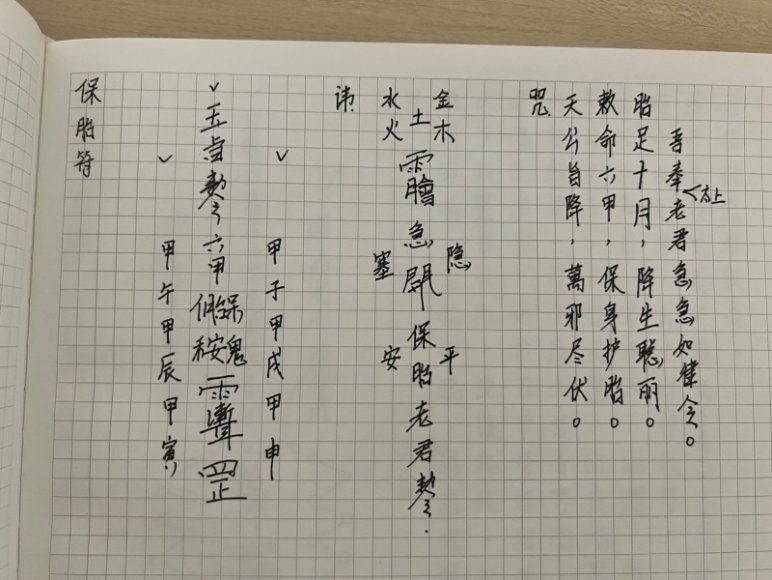 保胎符
甲午甲辰甲寅
玉旨敕令六甲 罡
甲子甲戌甲申
讳
水火 塞安
土 急 保胎老君敕令.
金木 隐平
咒
天公旨降,萬邪尽伏。
敕命六甲,保身护胎。
胎足十月,降生聪丽。
吾奉<太上老君急急如律令。